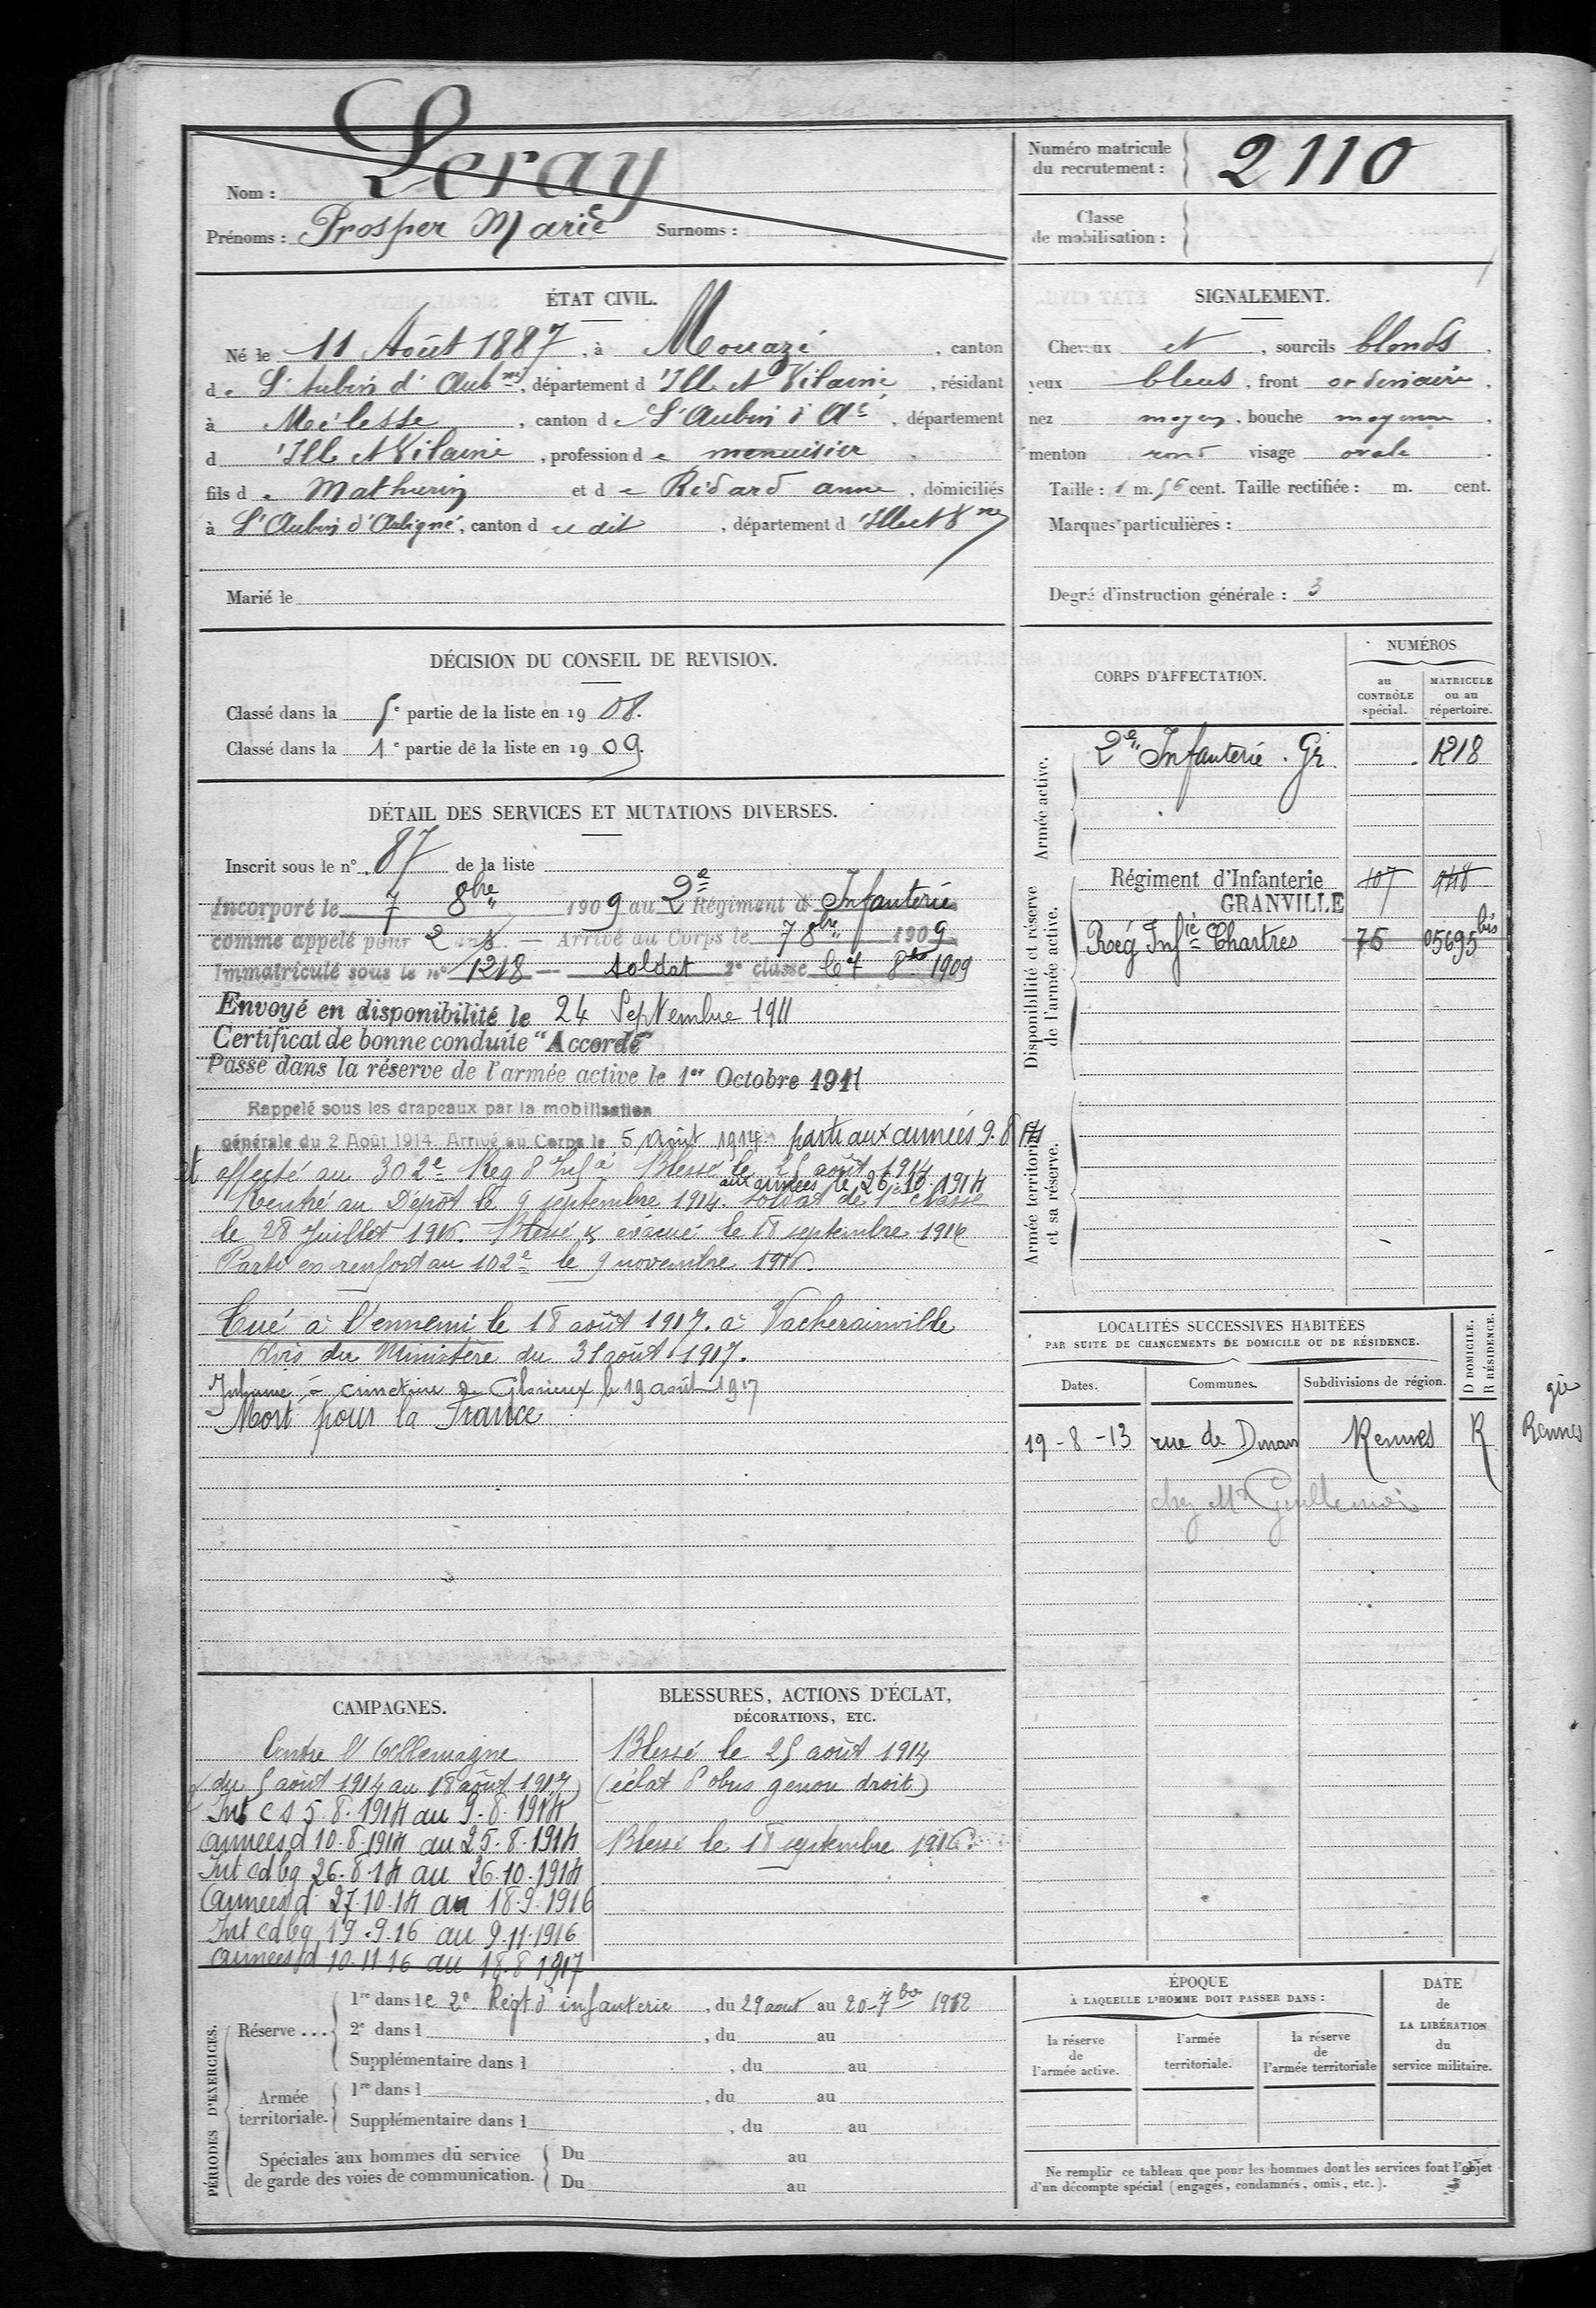 Nom : Leray
Prénoms : Prosper Marie Surnoms :
Numéro matricule
du recrutement : 2110
Classe
de mobilisation :
ÉTAT CIVIL.
Né le 11 Août 1887, à Mouazé, canton
de St Aubin d'Aubné, département d'Ille et Vilaine, résidant
à Melesse, canton de St Aubin d'Aé, département
d'Ille et Vilaine, profession de menuisier
fils de Mathurin et de Ridard anne, domiciliés
à St Aubin d'Aubigné, canton du dit, département d'Ille et Vne
Marié le
SIGNALEMENT.
Cheveux et, sourcils blonds,
yeux bleus, front ordinaire,
nez moyen, bouche moyenne,
menton rond visage ovale.
Taille : 1 m. 56 cent. Taille rectifiée : m. cent.
Marques particulières :
Degré d'instruction générale : 3
DÉCISION DU CONSEIL DE REVISION.
Classé dans la 5e partie de la liste en 1908.
Classé dans la 1e partie de la liste en 1909.
DÉTAIL DES SERVICES ET MUTATIONS DIVERSES.
Inscrit sous le n° 87 de la liste
Incorporé le 7 8bre 1909 au 2e Régiment d'Infanterie
comme appelé pour 2 ans — Arrivé au Corps le 7 8bre 1909
Immatriculé sous le n° 1218 — soldat 2e classe le 7 8bre 1909
Envoyé en disponibilité le 24 Septembre 1911
Certificat de bonne conduite "Accordé"
Passé dans la réserve de l'armée active le 1er Octobre 1911
Rappelé sous les drapeaux par la mobilisation
générale du 2 Août 1914. Arrivé au Corps le 5 Août 1914 parti aux armées 9.8.14
et affecté au 302e Reg d'Infie Blessé le 25 août 1914
aux armées le 26.10.1914
Rentré au Dépôt le 9 septembre 1914. Soldat de 1re classe
le 28 Juillet 1916. Blessé & évacué le 18 septembre 1916
Parti en renfort au 102e le 9 novembre 1916.
Tué à l'ennemi le 18 août 1917. à Vacherainville
Avis du Ministère du 31 août 1917.
Inhumé à cimetière de Glorieux le 19 août 1917
Mort pour la France
CORPS D'AFFECTATION.
NUMÉROS
au
CONTRÔLE
spécial.
MATRICULE
ou au
répertoire.
Armée active.
2e Infanterie. Gr. 1218
Disponibilité et réserve
de l'armée active.
Régiment d'Infanterie 107 948
GRANVILLE
Rég Infie Chartres 75 05695 bis
Armée territoriale
et sa réserve.
LOCALITÉS SUCCESSIVES HABITÉES
PAR SUITE DE CHANGEMENTS DE DOMICILE OU DE RÉSIDENCE.
D DOMICILE.
R RÉSIDENCE.
Dates. Communes. Subdivisions de région.
19-8-13 rue de Dinan Rennes R
chez Mr
gie
Rennes
CAMPAGNES.
Contre l'Allemagne
(du 5 août 1914 au 18 août 1917)
Int CS 5.8.1914 au 9.8.1914
armées d 10.8.1914 au 25.8.1914
Int cdbg 26.8.14 au 26.10.1914
armées d 27.10.14 au 18.9.1916
Int cdbg 19.9.16 au 9.11.1916
armées d 10.11.16 au 18.8.1917
BLESSURES, ACTIONS D'ÉCLAT,
DÉCORATIONS, ETC.
Blessé le 25 août 1914
(éclat d'obus genou droit)
Blessé le 18 septembre 1916.
PÉRIODES D'EXERCICES.
Réserve ...
1re dans le 2e Régt d'infanterie, du 29 aout au 20-7bre 1912
2e dans l , du au
Supplémentaire dans l , du au
Armée
territoriale.
1re dans l , du au
Supplémentaire dans l , du au
Spéciales aux hommes du service
de garde des voies de communication.
Du au
Du au
ÉPOQUE
À LAQUELLE L'HOMME DOIT PASSER DANS :
la réserve
de
l'armée active.
l'armée
territoriale.
la réserve
de
l'armée territoriale
DATE
de
LA LIBÉRATION
du
service militaire.
Ne remplir ce tableau que pour les hommes dont les services font l'objet
d'un décompte spécial (engagés, condamnés, omis, etc.).